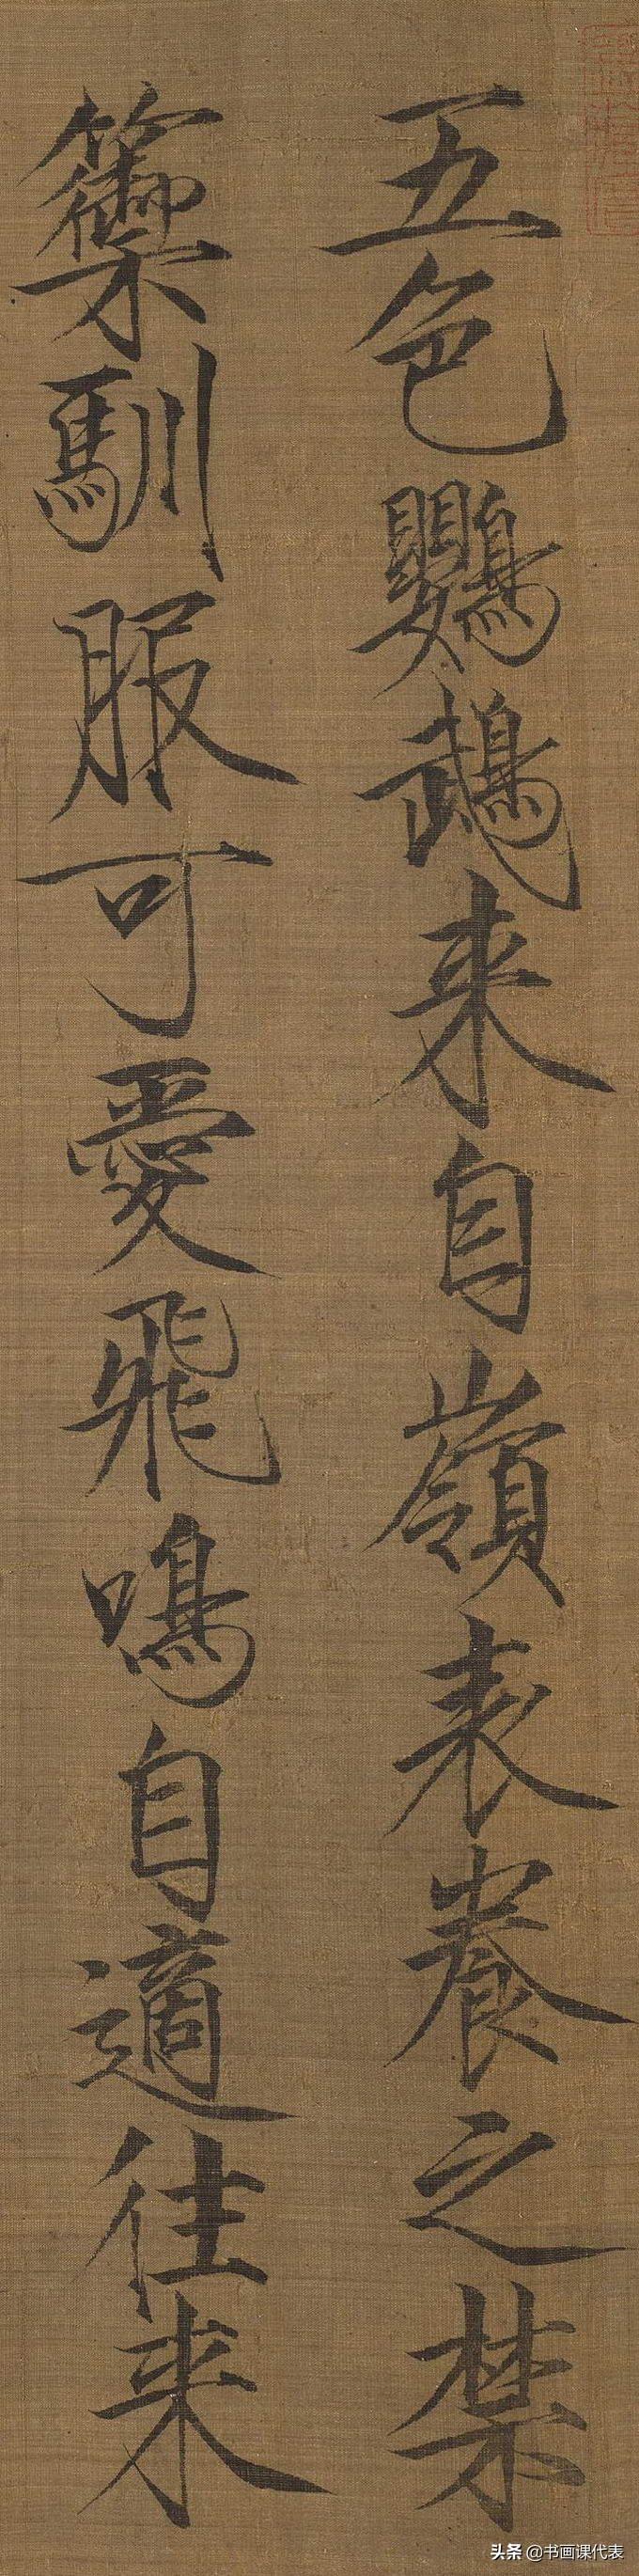 五色鸚䳇来自嶺表養之禁
籞馴服可愛飛鳴自適往来
头条 @书画课代表